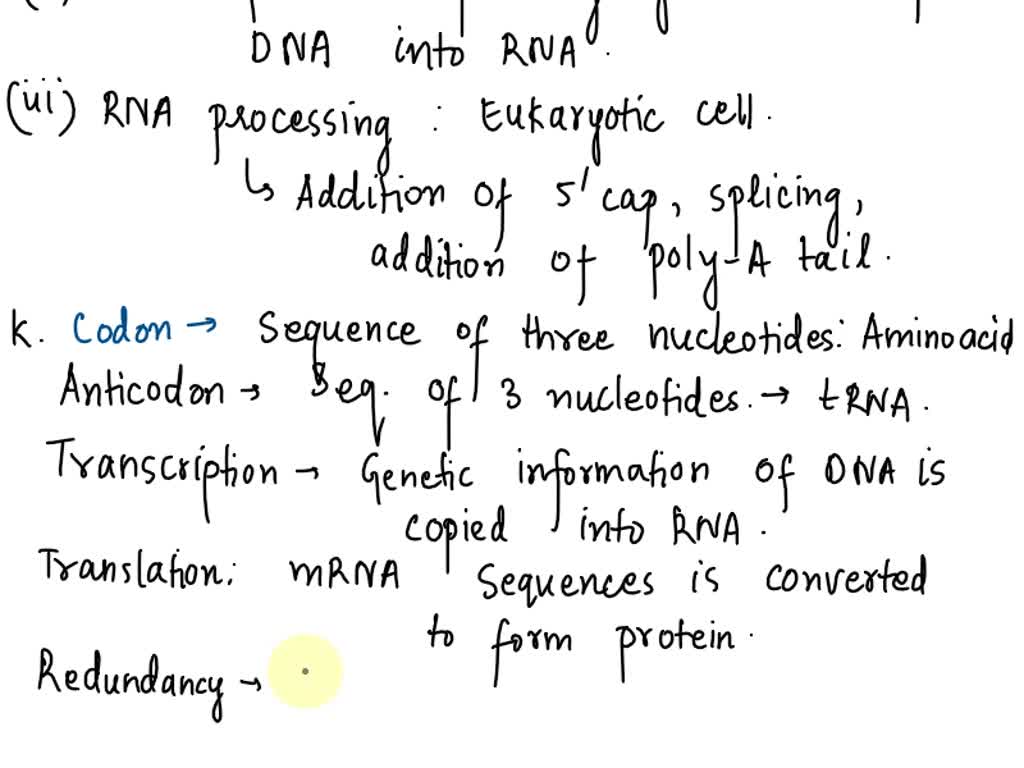 DNA into RNA.
(iii) RNA processing : Eukaryotic cell.
↳ Addition of 5' cap, splicing,
addition of poly-A tail.
k. Codon → Sequence of three nucleotides: Amino acid
Anticodon → Seq. of 3 nucleotides. → tRNA.
Transcription → Genetic information of DNA is
copied into RNA.
Translation: mRNA Sequences is converted
to form protein.
Redundancy →